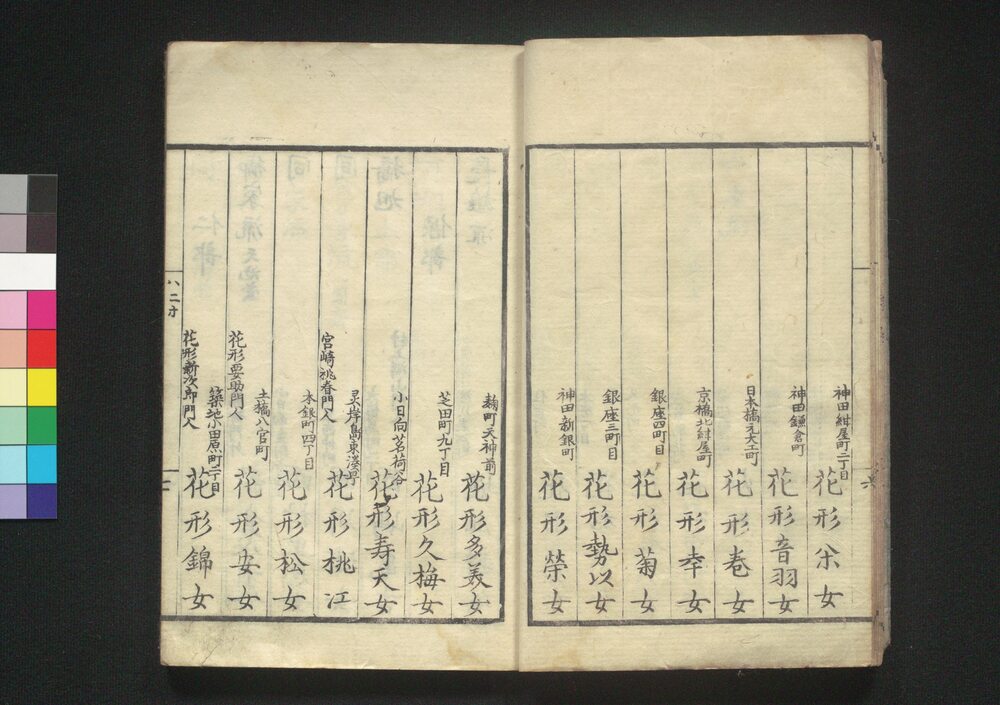 神田紺屋町二丁目
花形
女
神田鎌倉町
花形音羽女
日本橋元大工町
花形巻女
京橋北紺屋町
花形幸女
銀座四町目
花形菊女
銀座三町目
花形勢以女
神田新銀町
花形栄女
麹町天神前
花形多美女
芝田町九丁目
花形久梅女
小日向茗荷谷
花形寿天女
宮崎桃春門人
灵岸島東湊町
花形桃江
本銀町四丁目
花形松女
花形要助門人
土橋八官町
花形安女
花形新次郎門人
築地小田原町二丁目
花形錦女
八二才